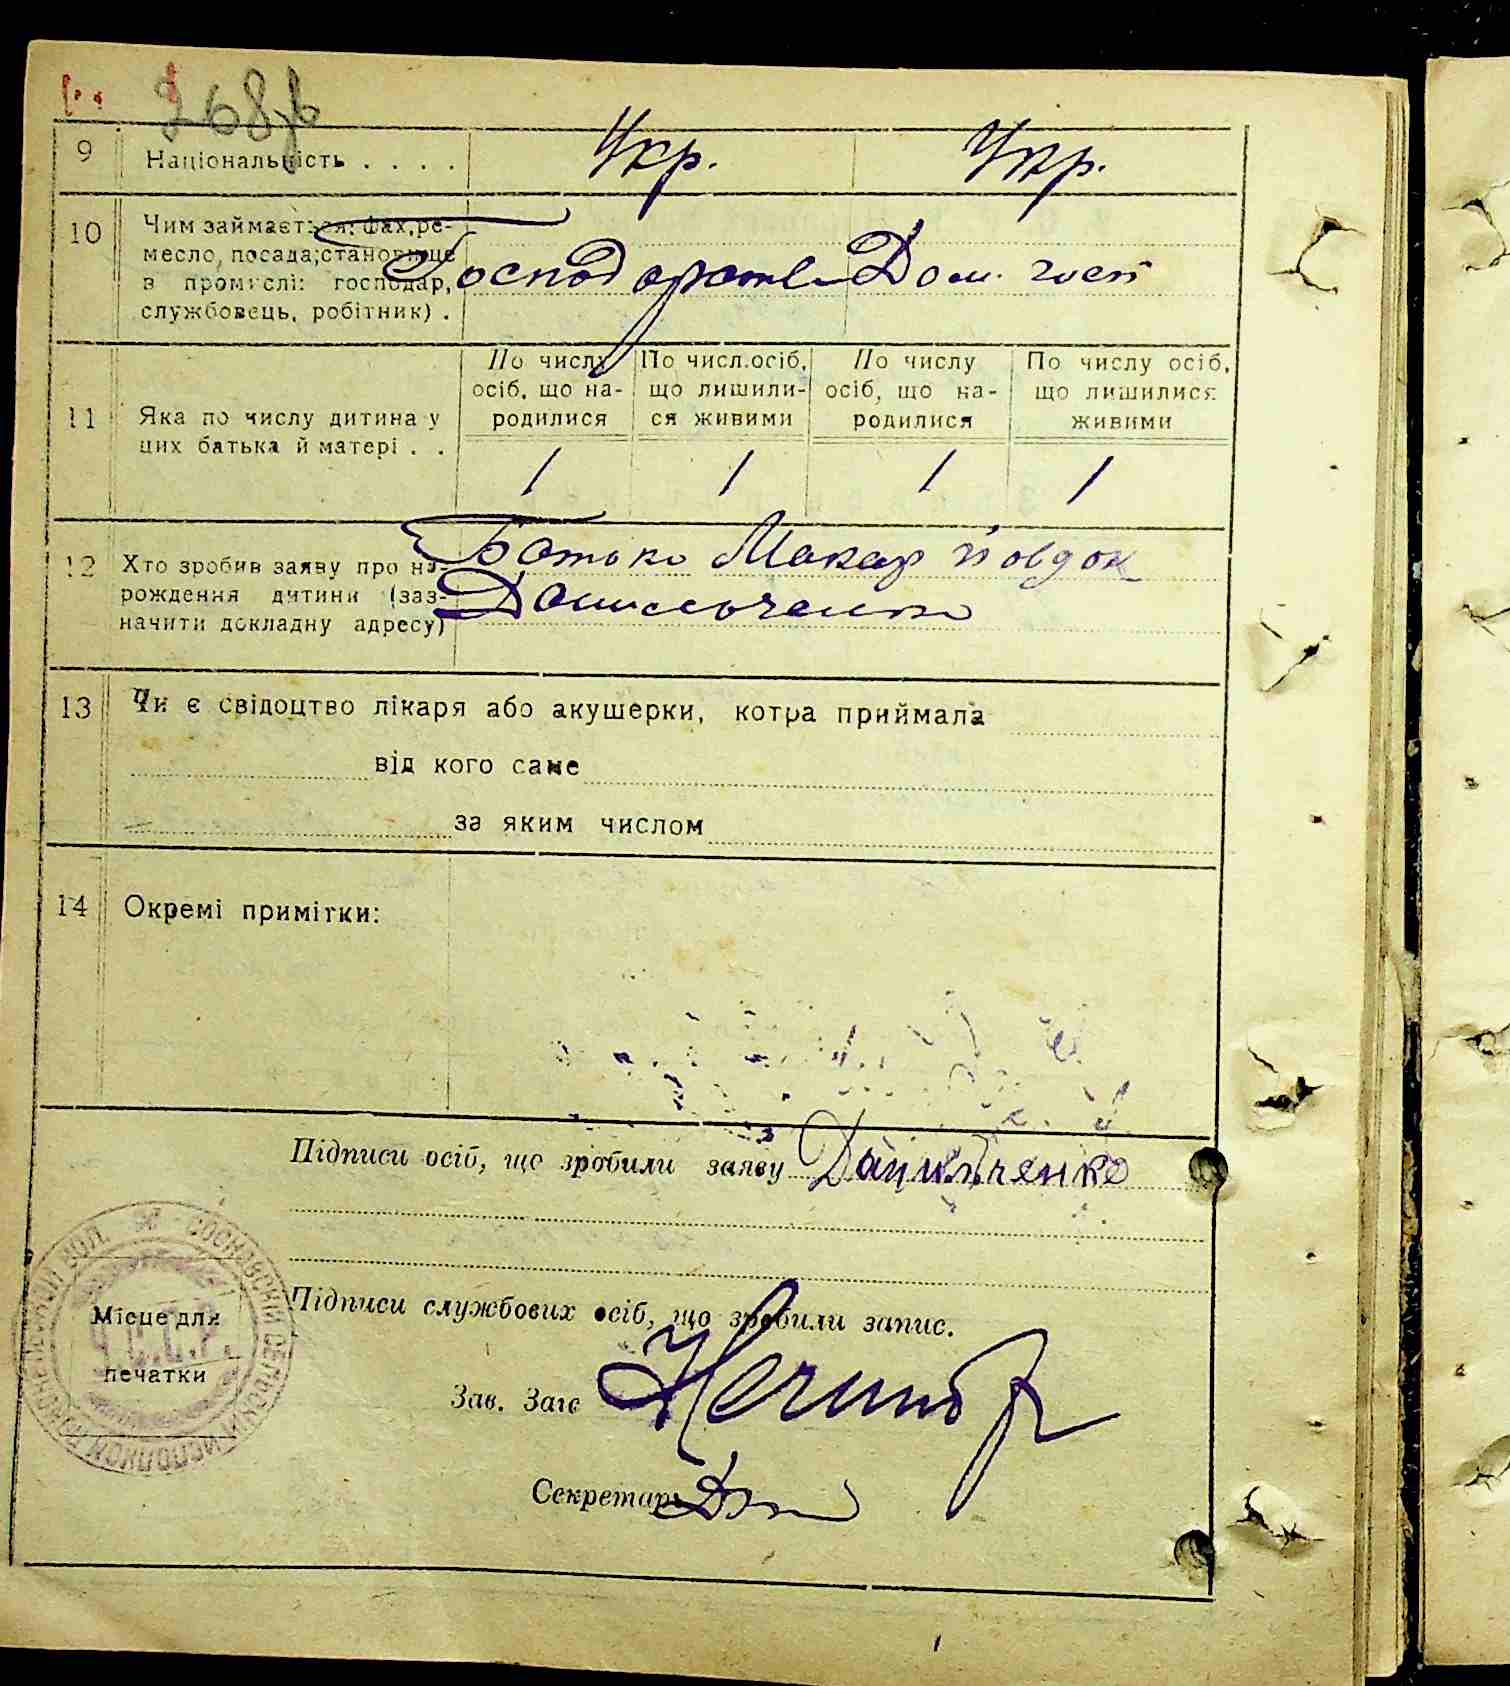 268
9 Національність . . . . Укр. Укр.
10 Чим займається: фах, ре-
месло, посада; становище
в промислі: господар,
службовець, робітник) .
Господарств Дом. госп
11 Яка по числу дитина у
цих батька й матері . .
По числу
осіб, що на-
родилися
По числ. осіб,
що лишили-
ся живими
По числу
осіб, що на-
родилися
По числу осіб,
що лишилися
живими
1 1 1 1
12 Хто зробив заяву про на-
рождення дитини (заз-
начити докладну адресу)
Батько Макар Йовдок
Данильченко
13 Чи є свідоцтво лікаря або акушерки, котра приймала
від кого саме
за яким числом
14 Окремі примітки:
Підписи осіб, що зробили заяву Данильченко
Підписи службових осіб, що зробили запис.
Місце для
печатки
У.С.С.Р.
Зав. Загс
Секретар